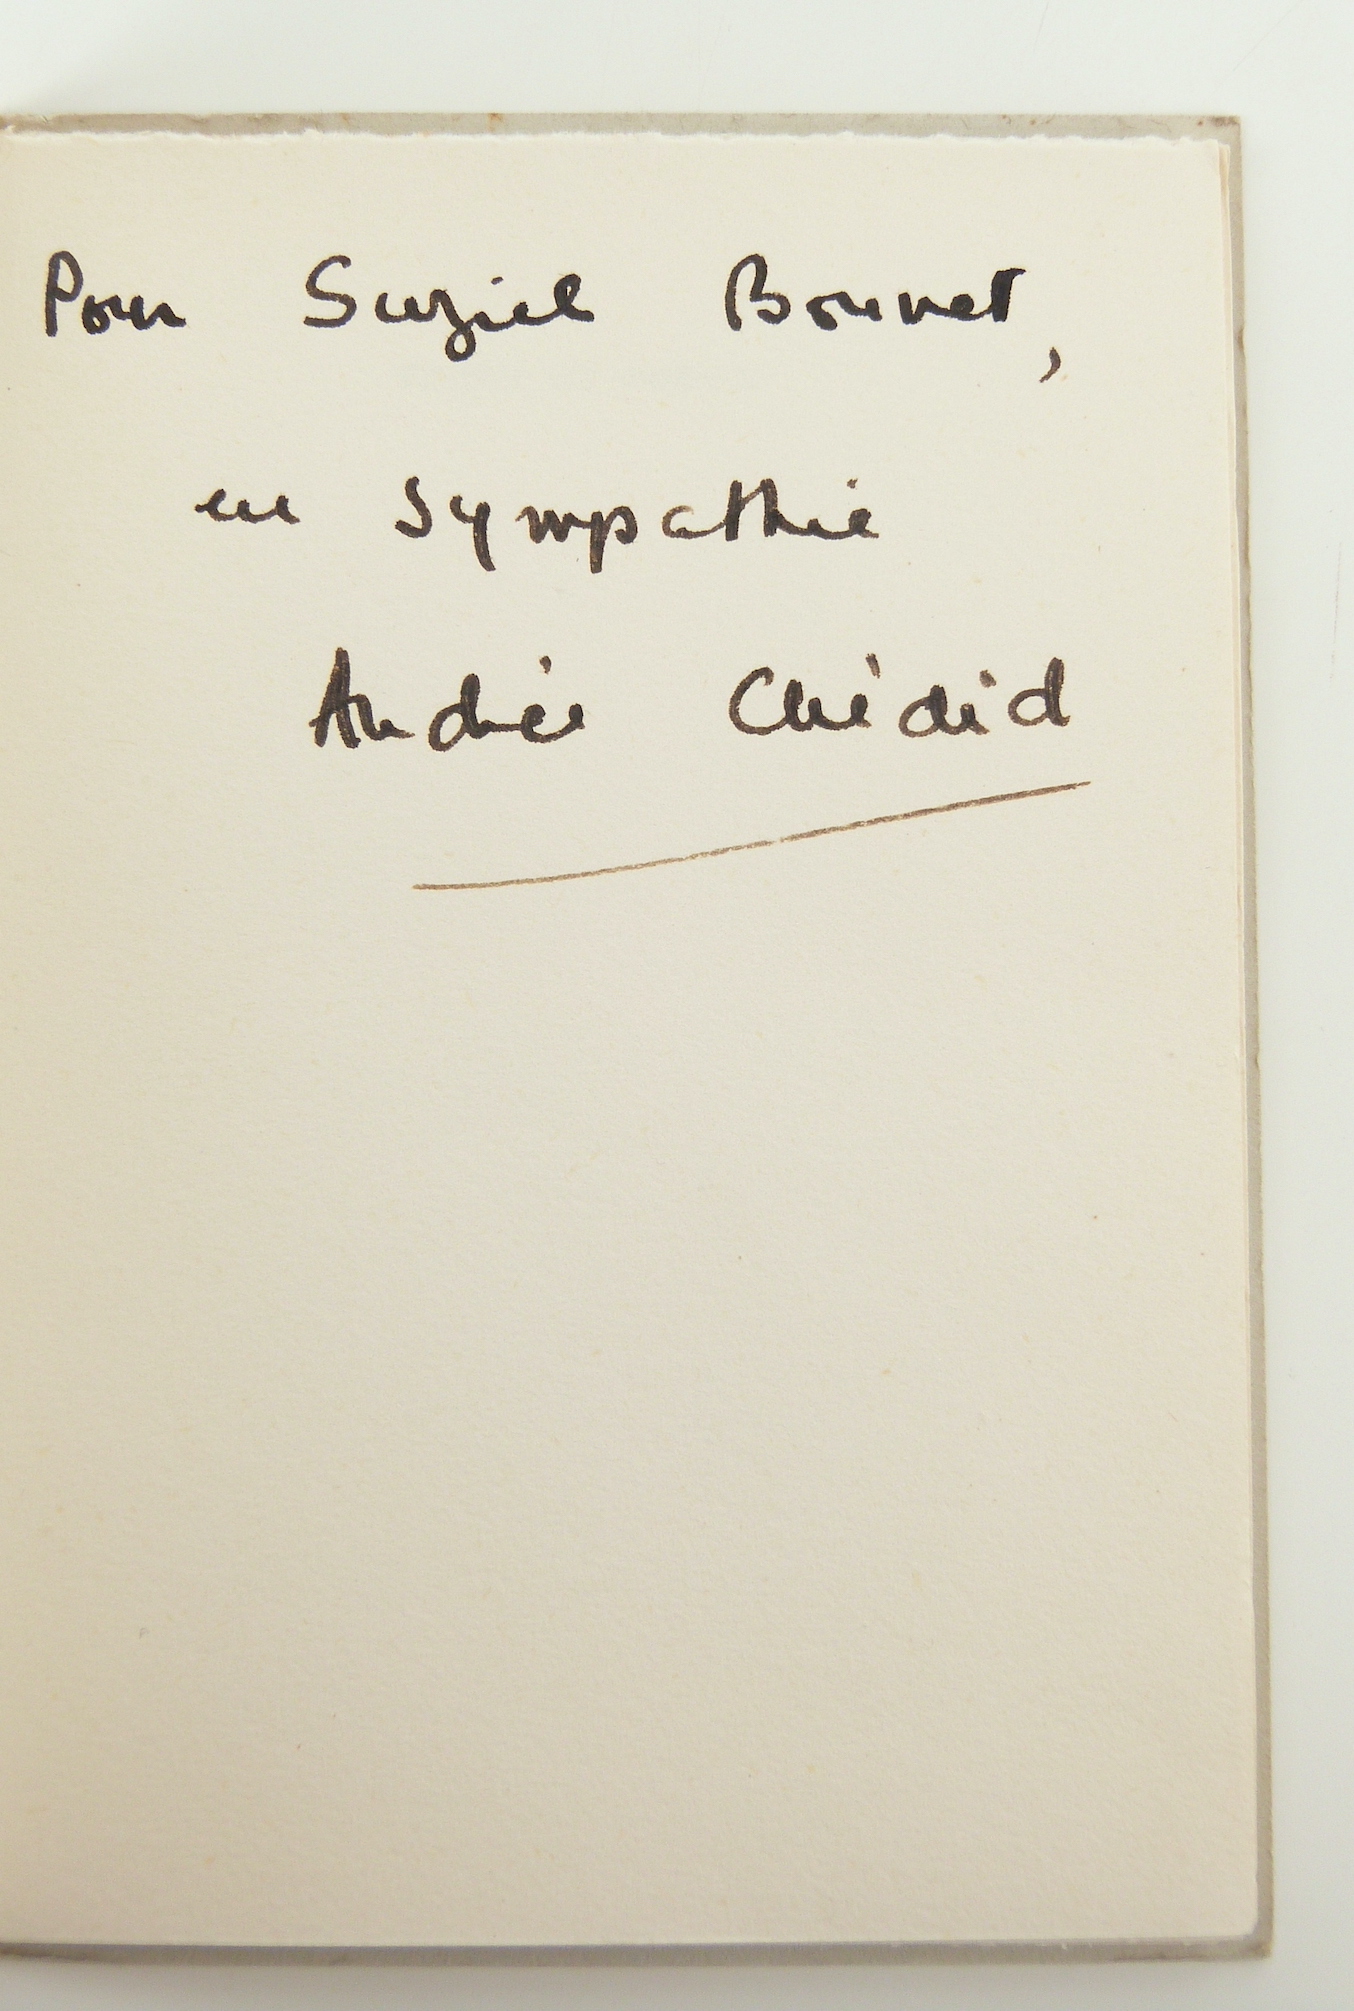 Pour Suziel Bonnet,
en sympathie
Andrée Chédid